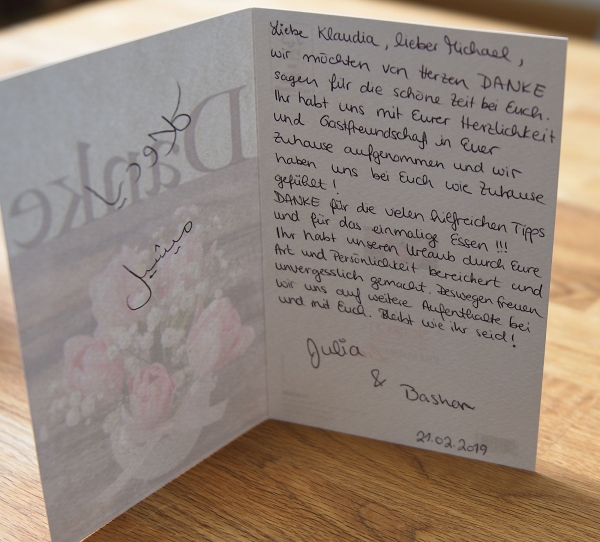 Danke
كلاوديا
ميشيل
Liebe Klaudia, lieber Michael,
wir möchten von Herzen DANKE
sagen für die schöne Zeit bei Euch.
Ihr habt uns mit Eurer Herzlichkeit
und Gastfreundschaft in Euer
Zuhause aufgenommen und wir
haben uns bei Euch wie Zuhause
gefühlt!
DANKE für die vielen hilfreichen Tipps
und für das einmalige Essen !!!
Ihr habt unseren Urlaub durch Eure
Art und Persönlichkeit bereichert und
unvergesslich gemacht. Deswegen freuen
wir uns auf weitere Aufenthalte bei
und mit Euch. Bleibt wie ihr seid!
Julia
&
Bashar
21.02.2019